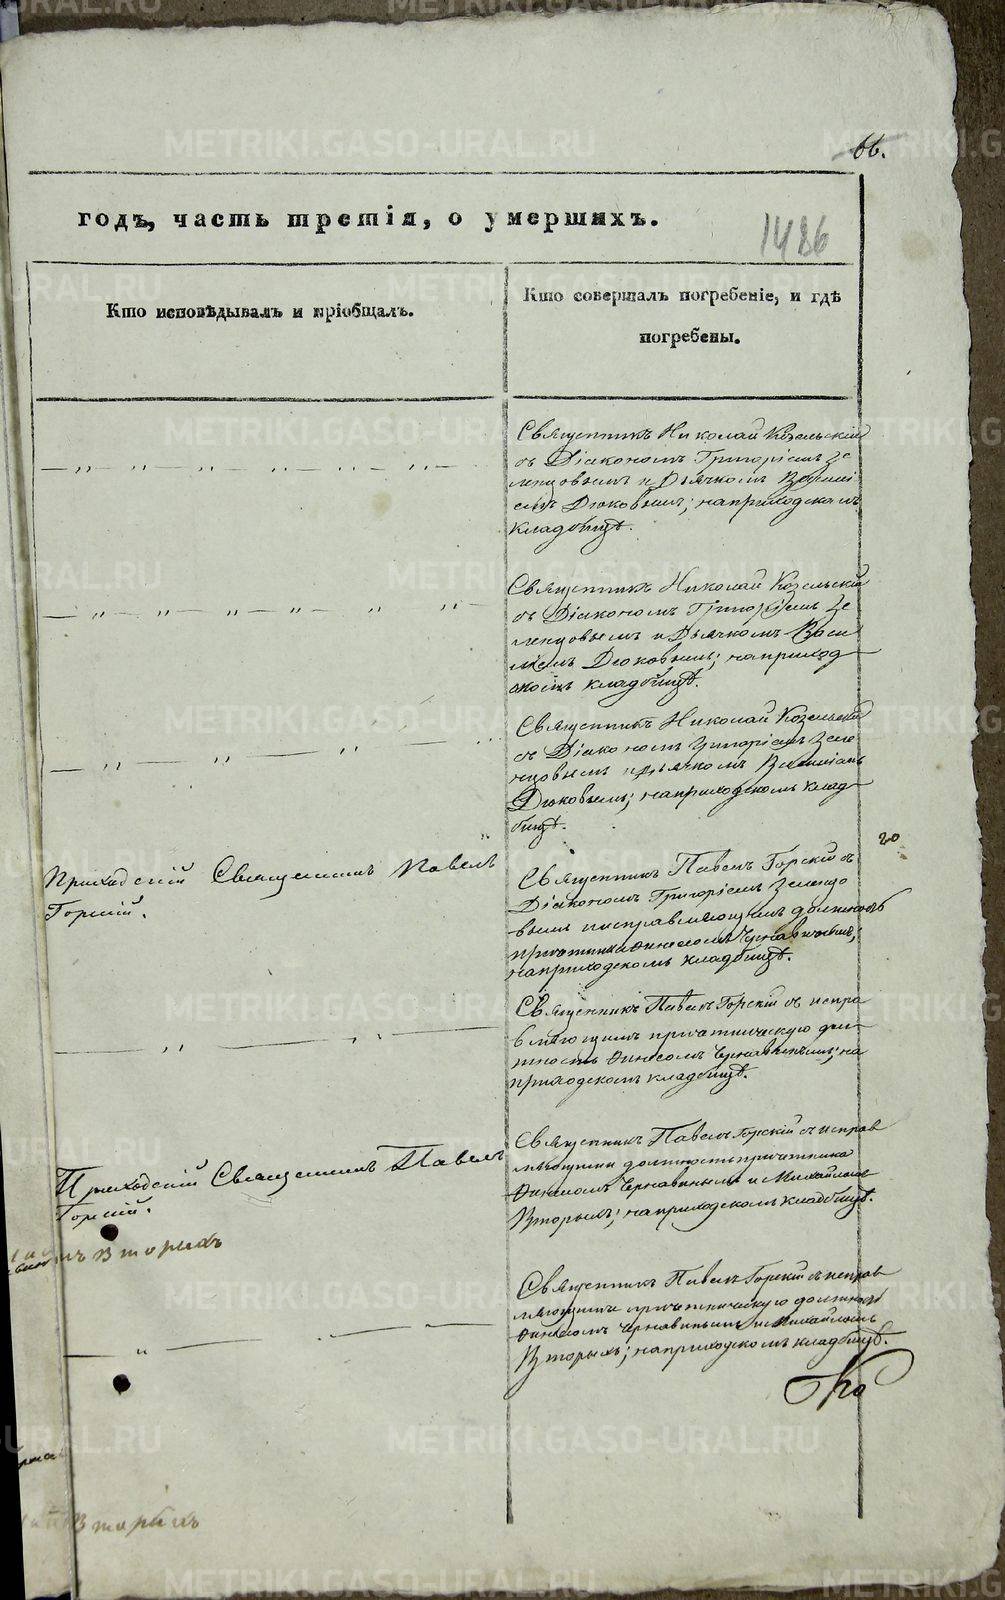 66.
годъ, часть третія, о умершихъ.
1486
Кто исповѣдывалъ и пріобщалъ.
Кто совершалъ погребеніе, и гдѣ
погребены.
Священникъ Николай Козельскій
съ Діакономъ Григоріемъ Зе
ленцовымъ и Дьячкомъ Васили
емъ Дюковымъ; на приходскомъ
кладбищѣ.
Священникъ Николай Козельскій
съ Діакономъ Григоріемъ Зе
ленцовымъ и Дьячкомъ Васи
ліемъ Дюковымъ; на приход
скомъ кладбищѣ.
Священникъ Николай Козельскій
съ Діакономъ Григоріемъ Зеле
нцовымъ и Дьячкомъ Василіемъ
Дюковымъ; на приходскомъ клад
бищѣ.
20
Приходскій Священникъ Павелъ
Горскій.
Священникъ Павелъ Горскій съ
Діакономъ Григоріемъ Зеленцо
вымъ и исправляющимъ должность
причетника Чернавинымъ;
на приходскомъ кладбищѣ.
Священникъ Павелъ Горскій съ испра
вляющимъ причетническую дол
жность Чернавинымъ; на
приходскомъ кладбищѣ.
Приходскій Священникъ Павелъ
Горскій.
Священникъ Павелъ Горскій съ исправ
ляющими должность причетника
Чернавинымъ и Михайломъ
Вторыхъ; на приходскомъ кладбищѣ.
Вторыхъ
Священникъ Павелъ Горскій съ исправ
ляющими причетническую должность
Чернавинымъ и Михайломъ
Вторыхъ; на приходскомъ кладбищѣ.
Вторыхъ
METRIKI.GASO-URAL.RU